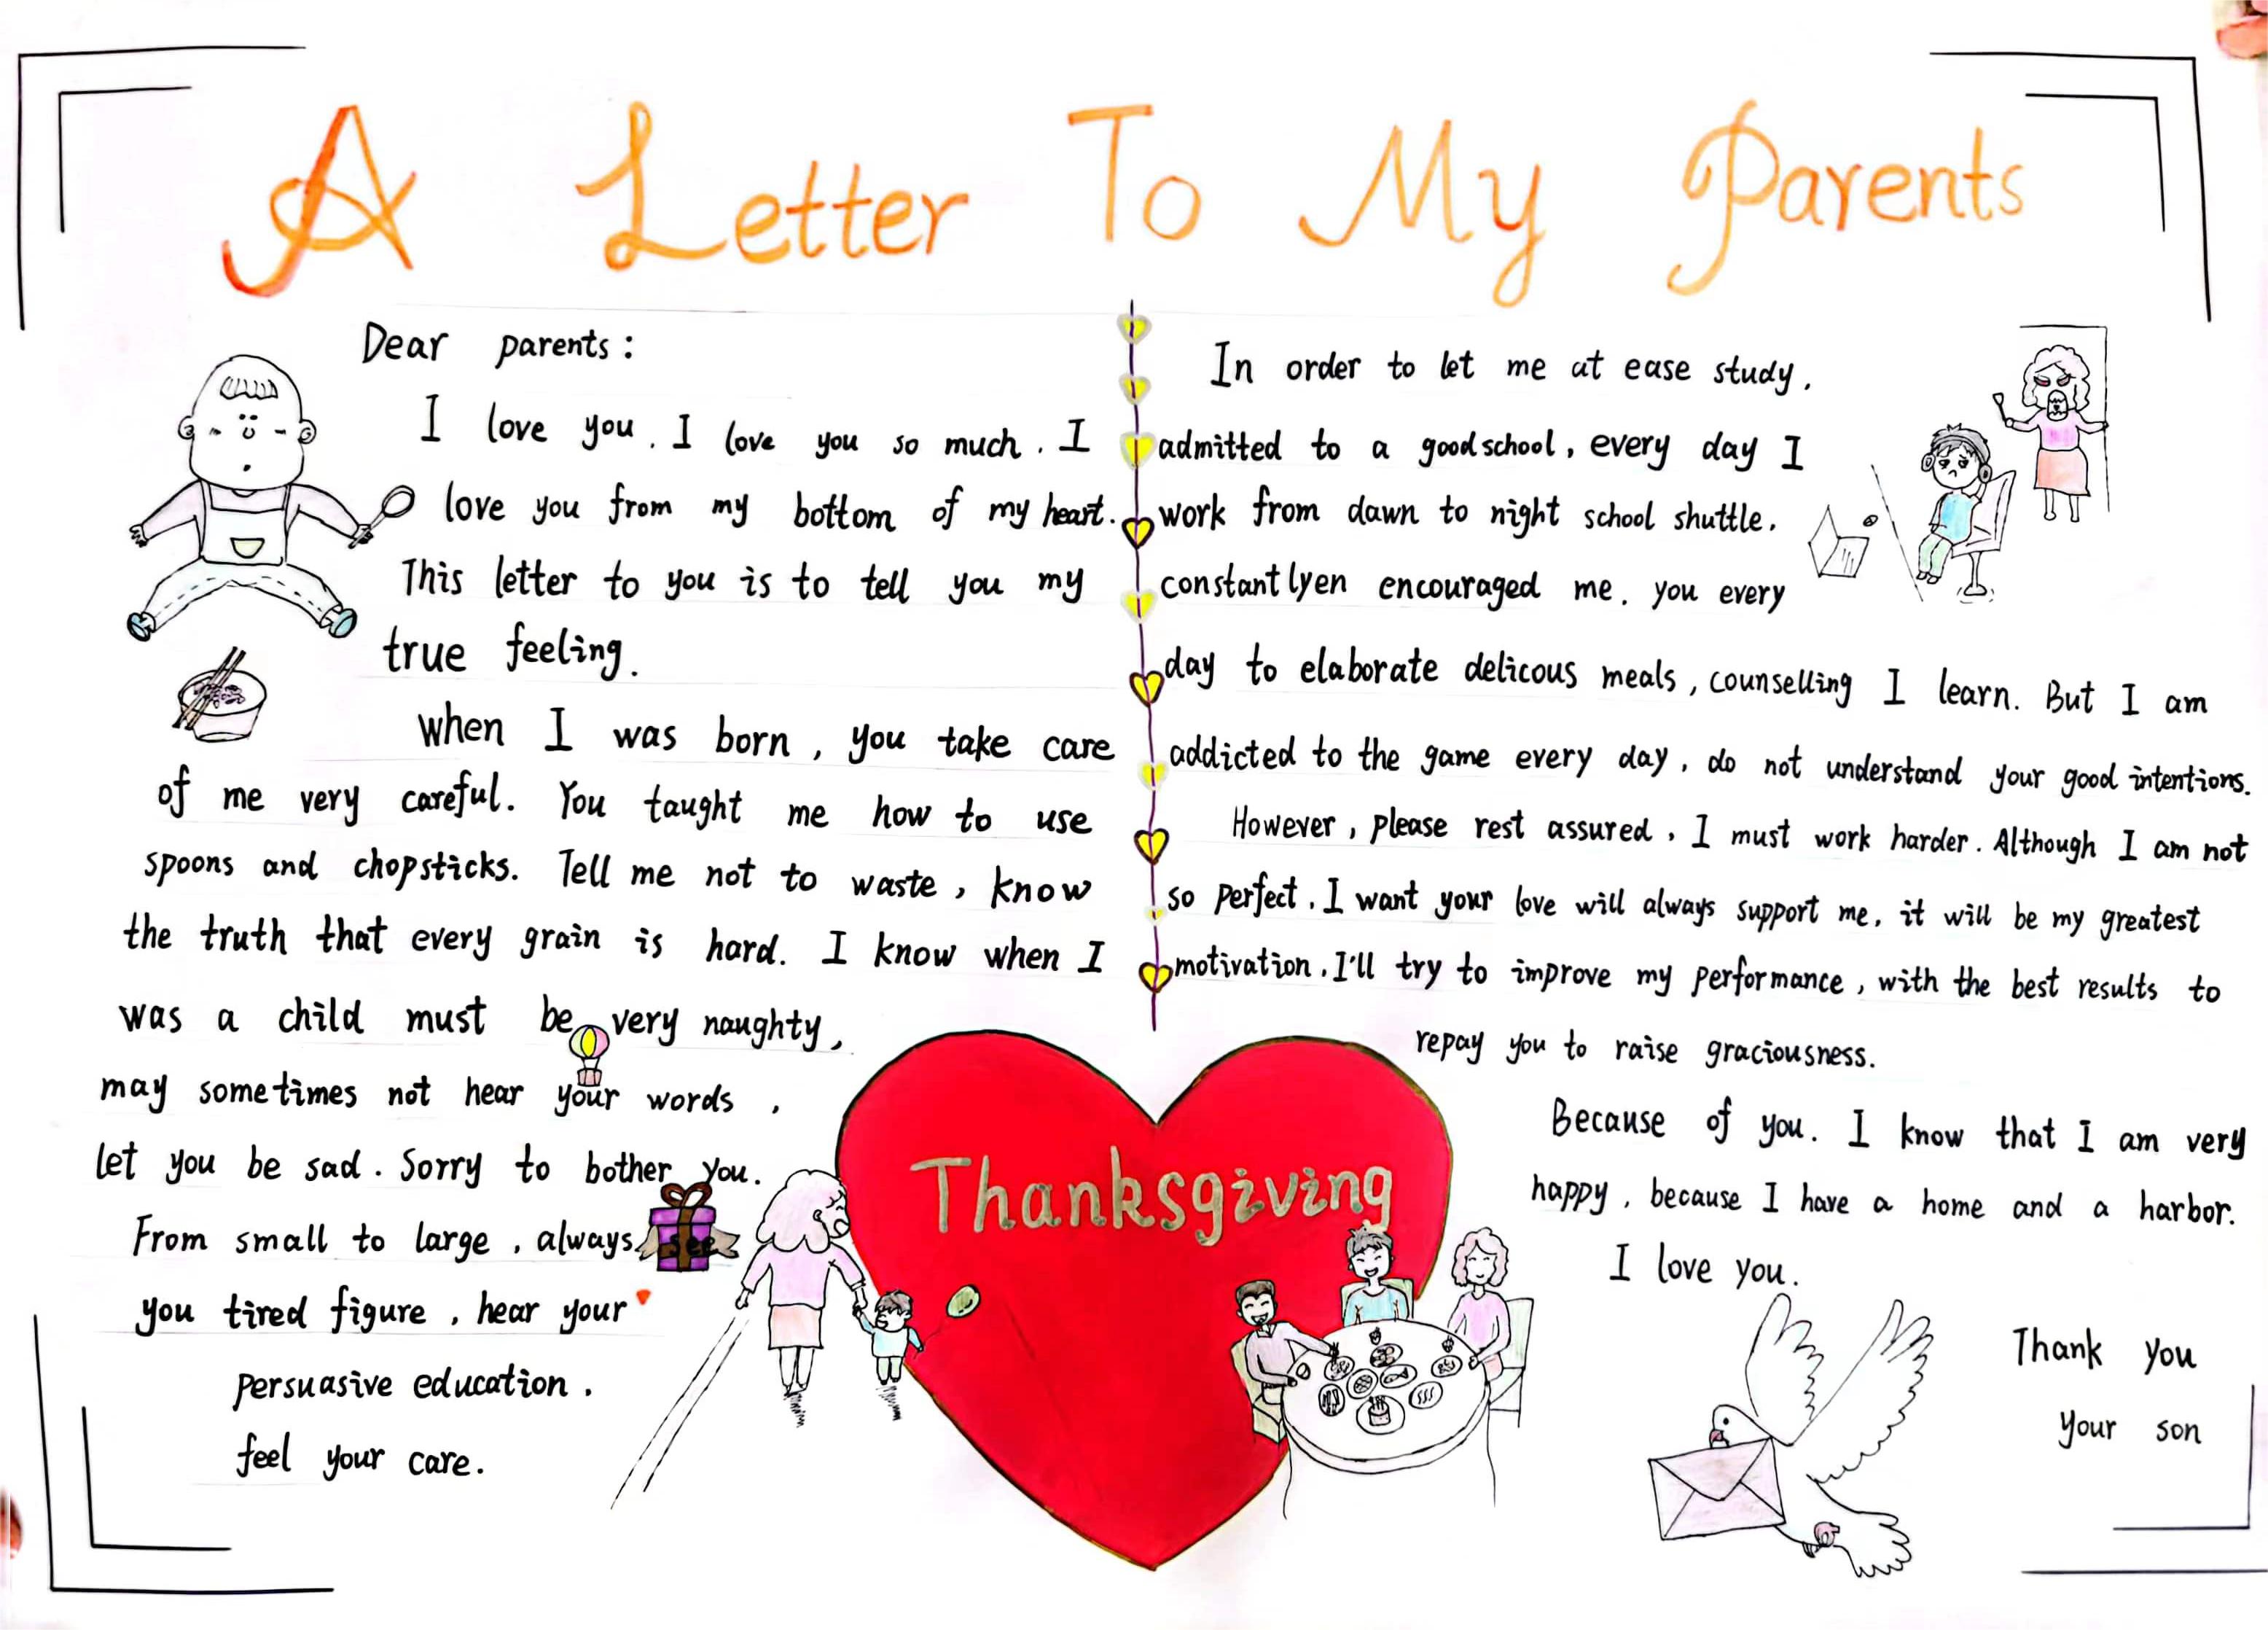 A Letter To My Parents
Dear parents:
I love you. I love you so much. I
love you from my bottom of my heart.
This letter to you is to tell you my
true feeling.
When I was born, you take care
of me very careful. You taught me how to use
spoons and chopsticks. Tell me not to waste, know
the truth that every grain is hard. I know when I
was a child must be very naughty,
may sometimes not hear your words,
let you be sad. Sorry to bother you.
From small to large, always see
you tired figure, hear your
persuasive education.
feel your care.
In order to let me at ease study,
admitted to a good school, every day I
work from dawn to night school shuttle.
constantlyen encouraged me. you every
day to elaborate delicous meals, counselling I learn. But I am
addicted to the game every day, do not understand your good intentions.
However, please rest assured, I must work harder. Although I am not
so perfect. I want your love will always support me, it will be my greatest
motivation. I'll try to improve my performance, with the best results to
repay you to raise graciousness.
Because of you. I know that I am very
happy, because I have a home and a harbor.
I love you.
Thank you
your son
Thanksgiving